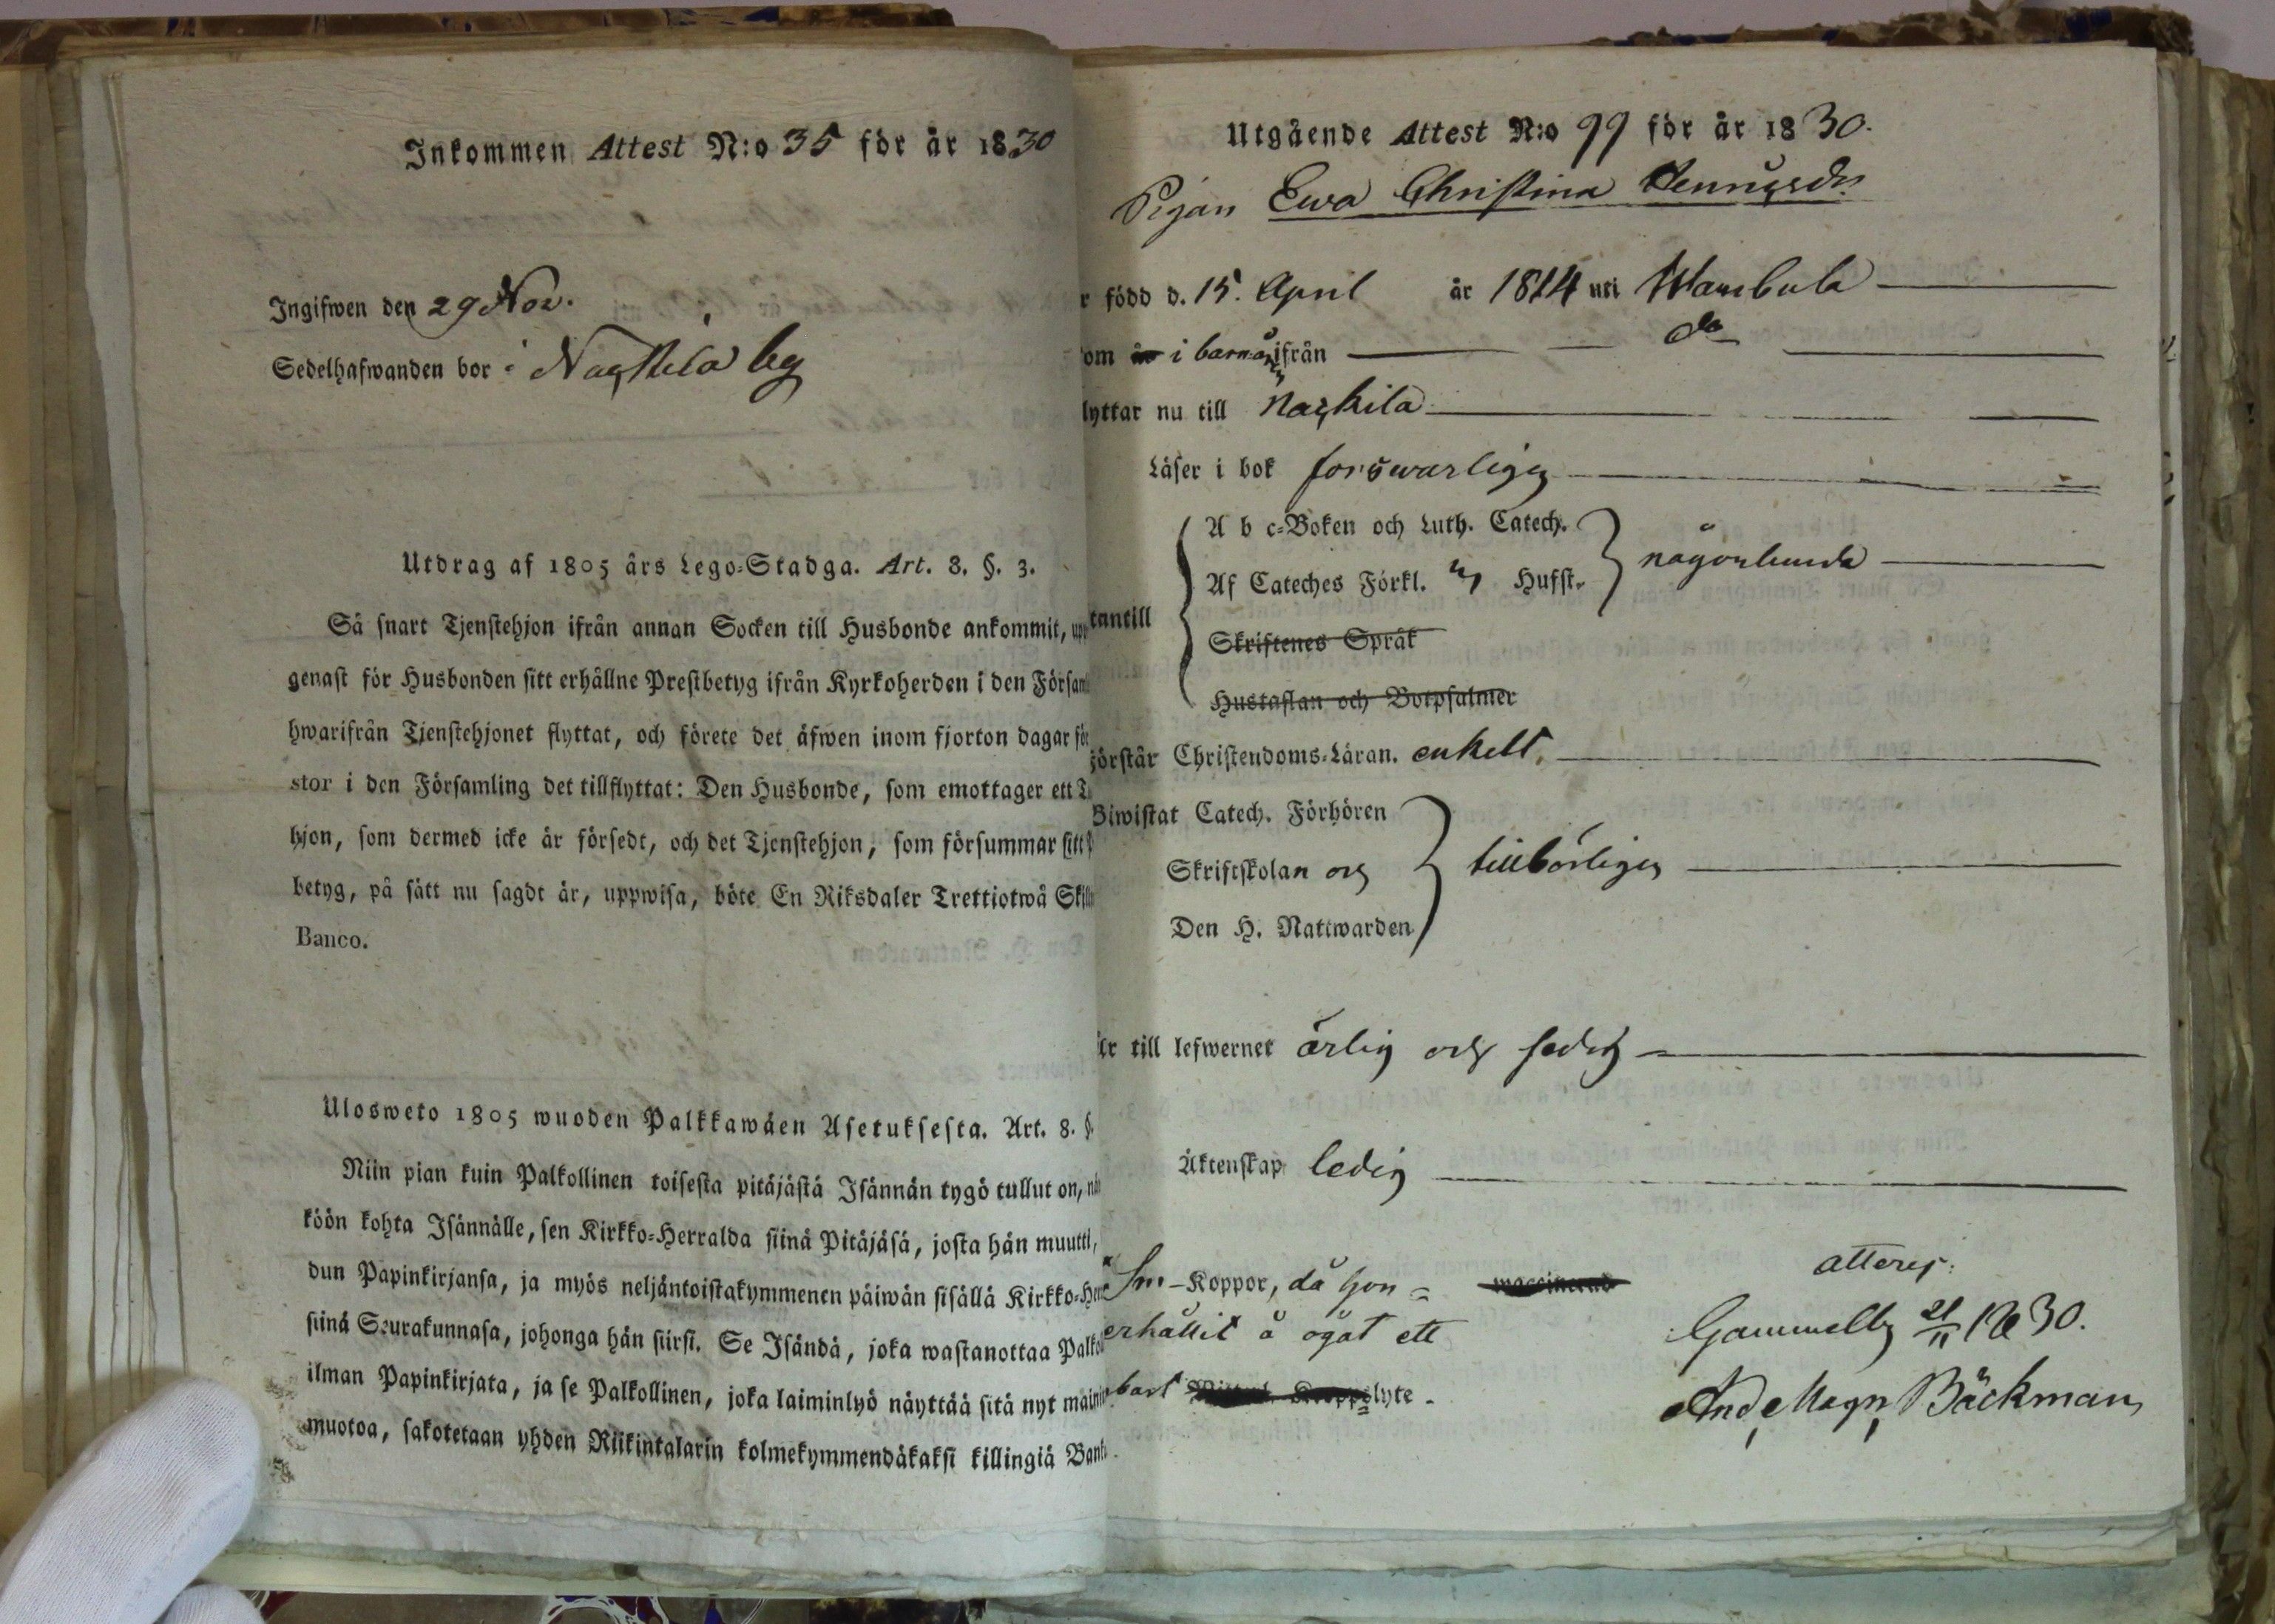 Inkommen Attest N:o 35 för år 1830
Ingifwen den 29 Nov.
Sedelhafwanden bor i Nackila by
Utdrag af 1805 års Lego-Stadga. Art. 8. §. 3.
Så snart Tjenstehjon ifrån annan Socken till Husbonde ankommit, upp
genast för Husbonden sitt erhållne Prestbetyg ifrån Kyrkoherden i den Försam
hwarifrån Tjenstehjonet flyttat, och förete det äfwen inom fjorton dagar för
stor i den Församling det tillflyttat: Den Husbonde, som emottager ett T
hjon, som dermed icke är försedt, och det Tjenstehjon, som försummar sitt
betyg, på sätt nu sagdt är, uppwisa, böte En Riksdaler Trettiotwå Skilli
Banco.
Ulosweto 1805 wuoden Palkkawäen Asetuksesta. Art. 8. §.
Niin pian kuin Palkollinen toisesta pitäjästä Isännän tygö tullut on, näy
köön kohta Isännälle, sen Kirkko-Herralda siinä Pitäjäsä, josta hän muutti,
dun Papinkirjansa, ja myös neljäntoistakymmenen päiwän sisällä Kirkko-Herr
siinä Seurakunnasa, johonga hän siirsi. Se Isändä, joka wastanottaa Palko
ilman Papinkirjata, ja se Palkollinen, joka laiminlyö näyttää sitä nyt mainit
muotoa, sakotetaan yhden Riikintalarin kolmekymmendäkaksi killingiä Banko
Utgående Attest N:o 99 för år 1830.
Pigan Ewa Christina Henricsdr
r född d. 15. April år 1814 uti Wambula
om år i barnaår ifrån do
lyttar nu till Nackila
Läser i bok forswarligen
A b c-Boken och Luth. Catech.
Af Cateches Förkl. Husst. någorlunda
tantill
Skriftenes Språk
Hustaflan och Botpsalmer
förstår Christendoms-Läran. enkelt.
Biwistat Catech. Förhören
Skriftskolan och tillbörligen
Den H. Nattwarden
är till lefwernet ärlig och sedig
Äktenskap ledig
attest.
Sm-Koppor, då hon = waccinerad
Gammelby 21/11 1830.
erhållit å ögat ett
And. Magn. Bäckman
bart lyte.